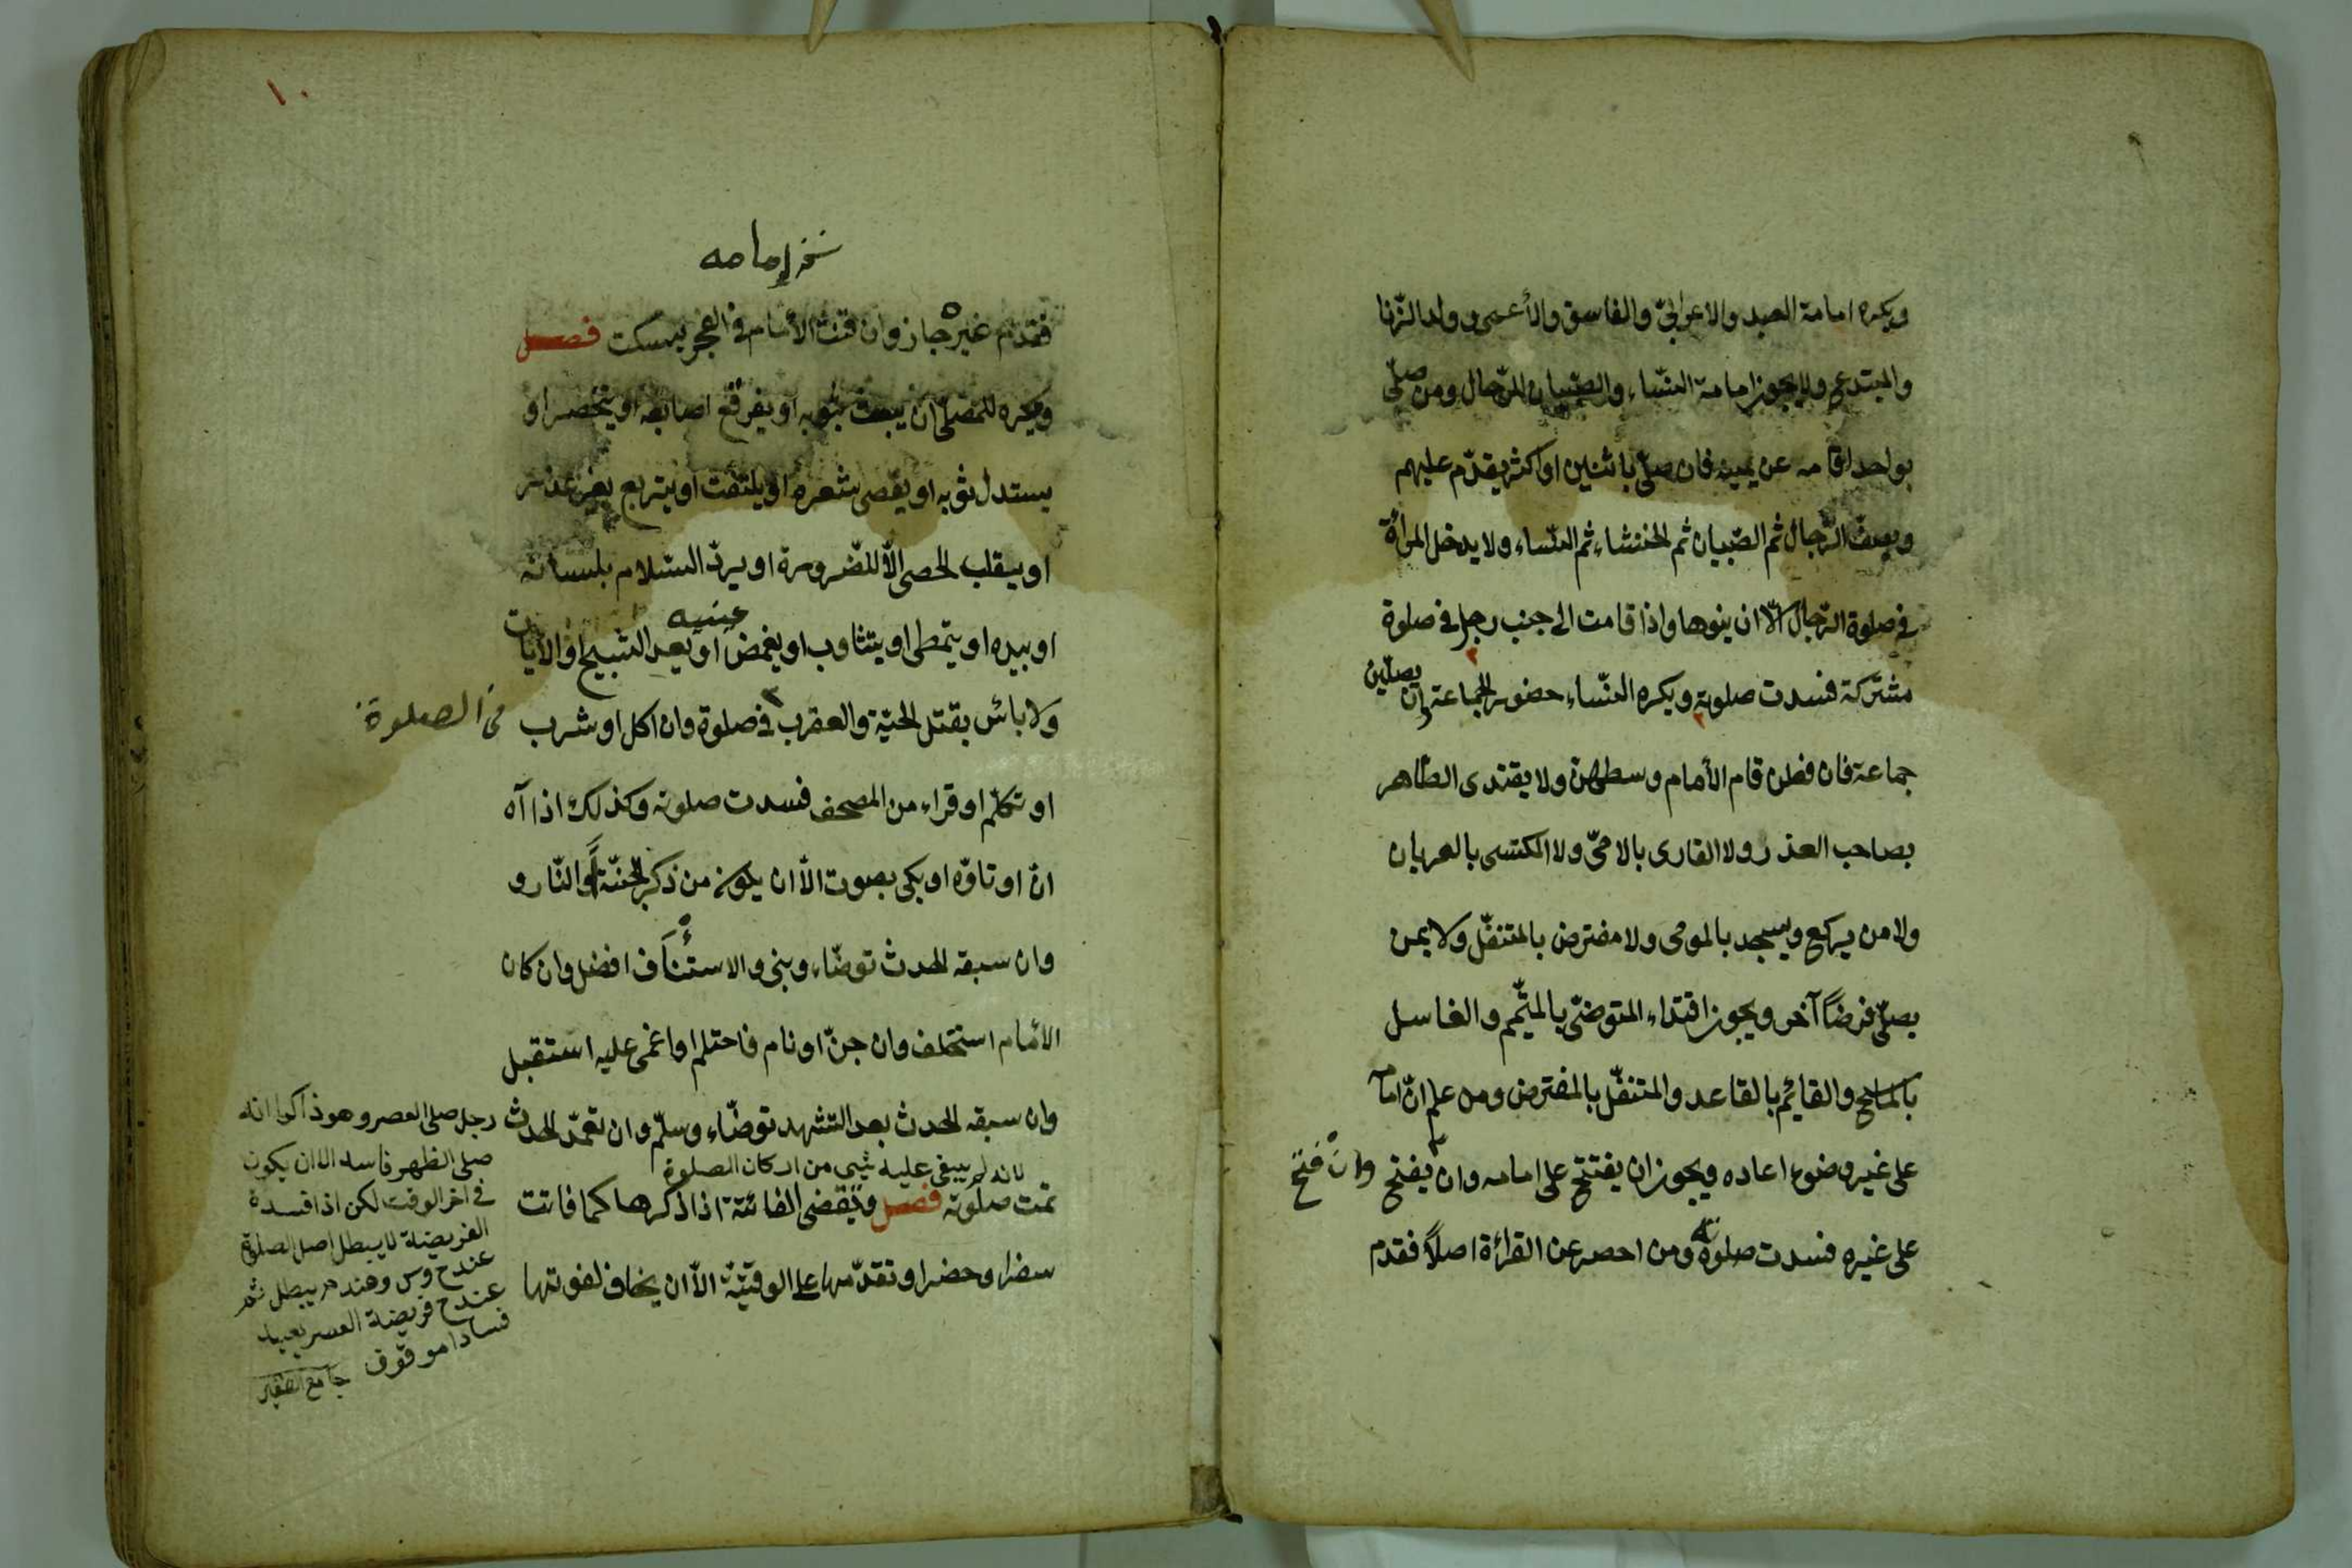 ويكره امامة العبد والاعرابيّ والفاسق والأعمى وولد الزّنا
والمبتدع ولا يجوز امامة النّساء والصّبيان للرّجال ومن صلّى
بواحد اقامه عن يمينه فان صلّى باثنين او اكثر يقدّم عليهم
ويصفّ الرّجال ثم الصّبيان ثم الخنثاء ثم النّساء ولا يدخل المرأة
في صلوة الرّجال الّا ان ينوها واذا قامت الى جنب رجل في صلوة
مشتركة فسدت صلوته ويكره النّساء حضور الجماعة وان يصلّين
جماعة فان فعلن قام الأمام وسطهنّ ولا يقتدى الطّاهر
بصاحب العذر ولا القارى بالامّى ولا المكتسى بالعريان
ولا من يركع ويسجد بالمومى ولا مفترض بالمتنفّل ولا بمن
يصلّى فرضاً آخر ويجوز اقتداء المتوضّى بالمتيّمم والغاسل
بالماسح والقائم بالقاعد والمتنفّل بالمفترض ومن علم انّ امامه
على غير وضوء اعاده ويجوز ان يفتتح على امامه وان يفتح وان فتح
على غيره فسدت صلوته ومن احصر عن القرائة اصلاً فقدم
١٠
نخر امامه
فتقدّم غيره جاز وان قنت الأمام في الفجر يسكت فصل
ويكره للمصلّى ان يعبث بثوبه او يفرقع اصابعه او يتخصر او
يستدل ثوبه او يقصى شعره او يلتفت او يتربع بغير عذر
او يقلب الحصى الّا للضّرورة او يردّ السّلام بلسانه
او بيده او يتمطى او يتثاوب او يغمض عنيه او يعد التسبيح او الأيات
ولا باس بقتل الحيّة والعقرب في صلوة وان اكل او شرب في الصلوة
او تكلّم او قراء من المصحف فسدت صلوته وكذلك اذا آه
انّ او تاوّه او بكى بصوت الّا ان يكون من ذكر الجنّة والنّار و
وان سبقه الحدث توضّاء وبنى والاستئناف افضل وان كان
الأمام استخلف وان جنّ او نام فاحتلم او اغمى عليه استقبل
وان سبقه الحدث بعد التشهد توضّاء وسلّم وان تعمّد الحدث
لانه لم يبقى عليه شيى من اركان الصلوة
تمت صلوته فصل ويقضى الفائتة اذا ذكرها كما فاتت
سفرا وحضرا وتقدّمها على الوقتيّة الّا ان يخاف لفوتها
رجل صلى العصر وهو ذاكر انه
صلى الظهر فاسد الا ان يكون
في اخر الوقت لكن اذا فسدة
الفريضة لا يبطل اصل الصلوة
عندح وس وعندم يبطل ثم
عندح فريضة العصر يعيد
فسادا موقوف جامع الصغير